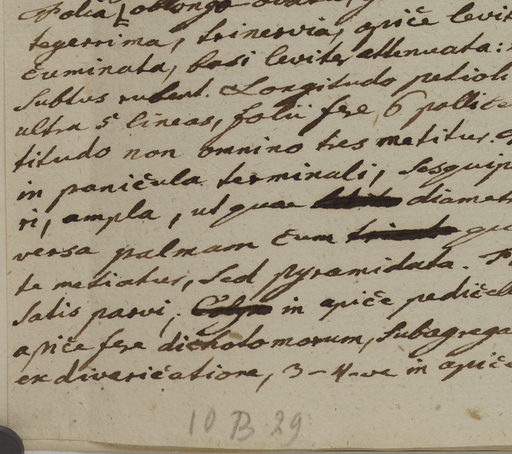 Folia oblongo
tegerrima, trinervia, apice levit
cuminata, basi leviter attenuata:
subtus rubent. Longitudo petioli
ultra 5 lineas, folii fere 6 pollic
titudo non omnino tres metitur.
in panicula terminali, sesquip
ri, ampla, ut quae diamet
versa palmam cum qu
te metiatur, sed pyramidata.
satis parvi, in apice pedicell
apice fere dichotomorum, subagrega
ex divaricatione, 3-4-ve in apice
10 B 29